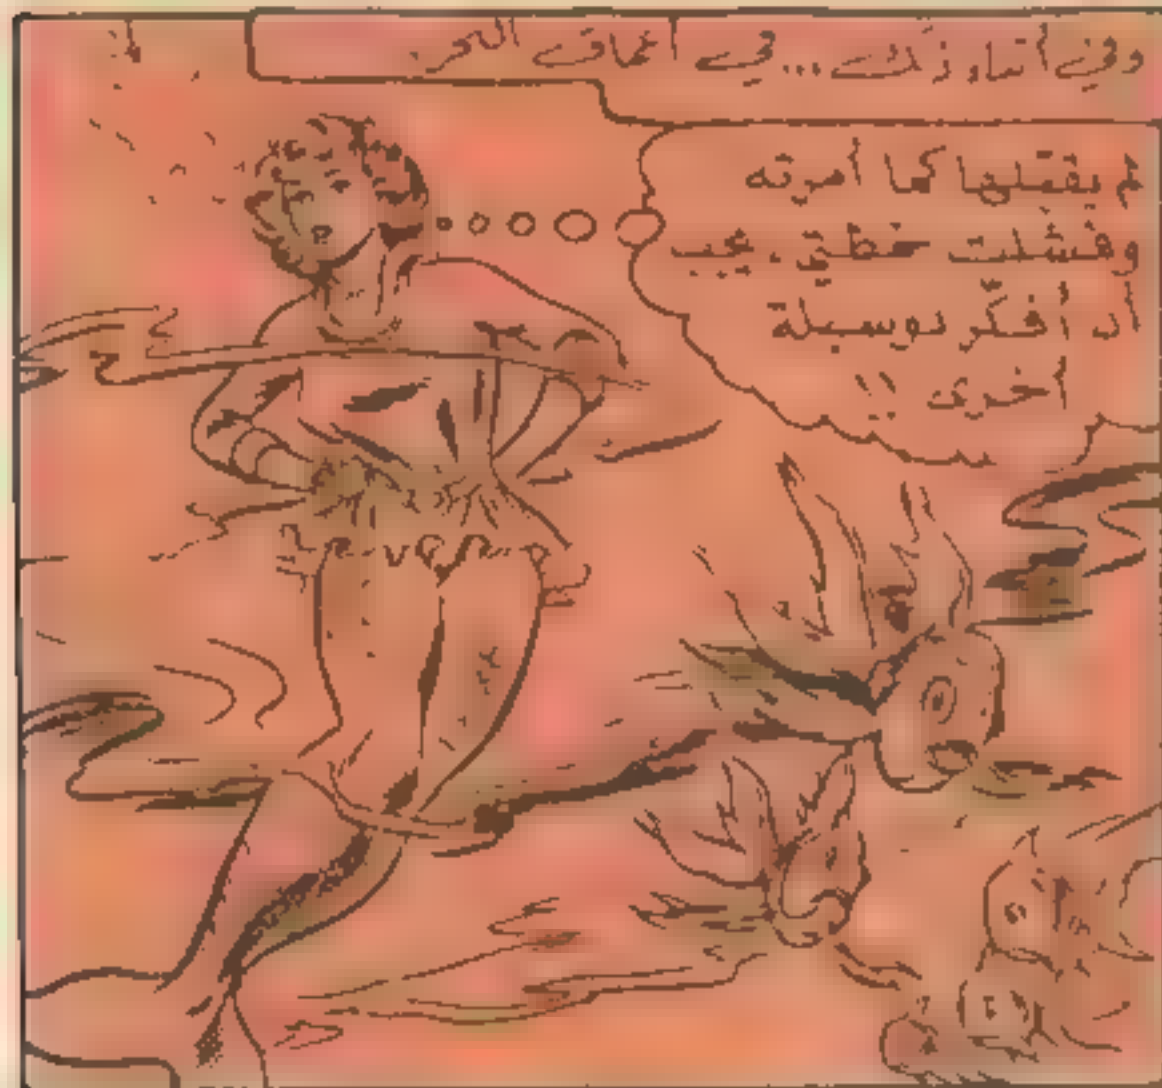 وفى أثناء ذلك ... فى أعماق البحر
لم يقتلها كما أمرته
وفشلت خطتى . يجب
أن أفكر بوسيلة
أخرى !!